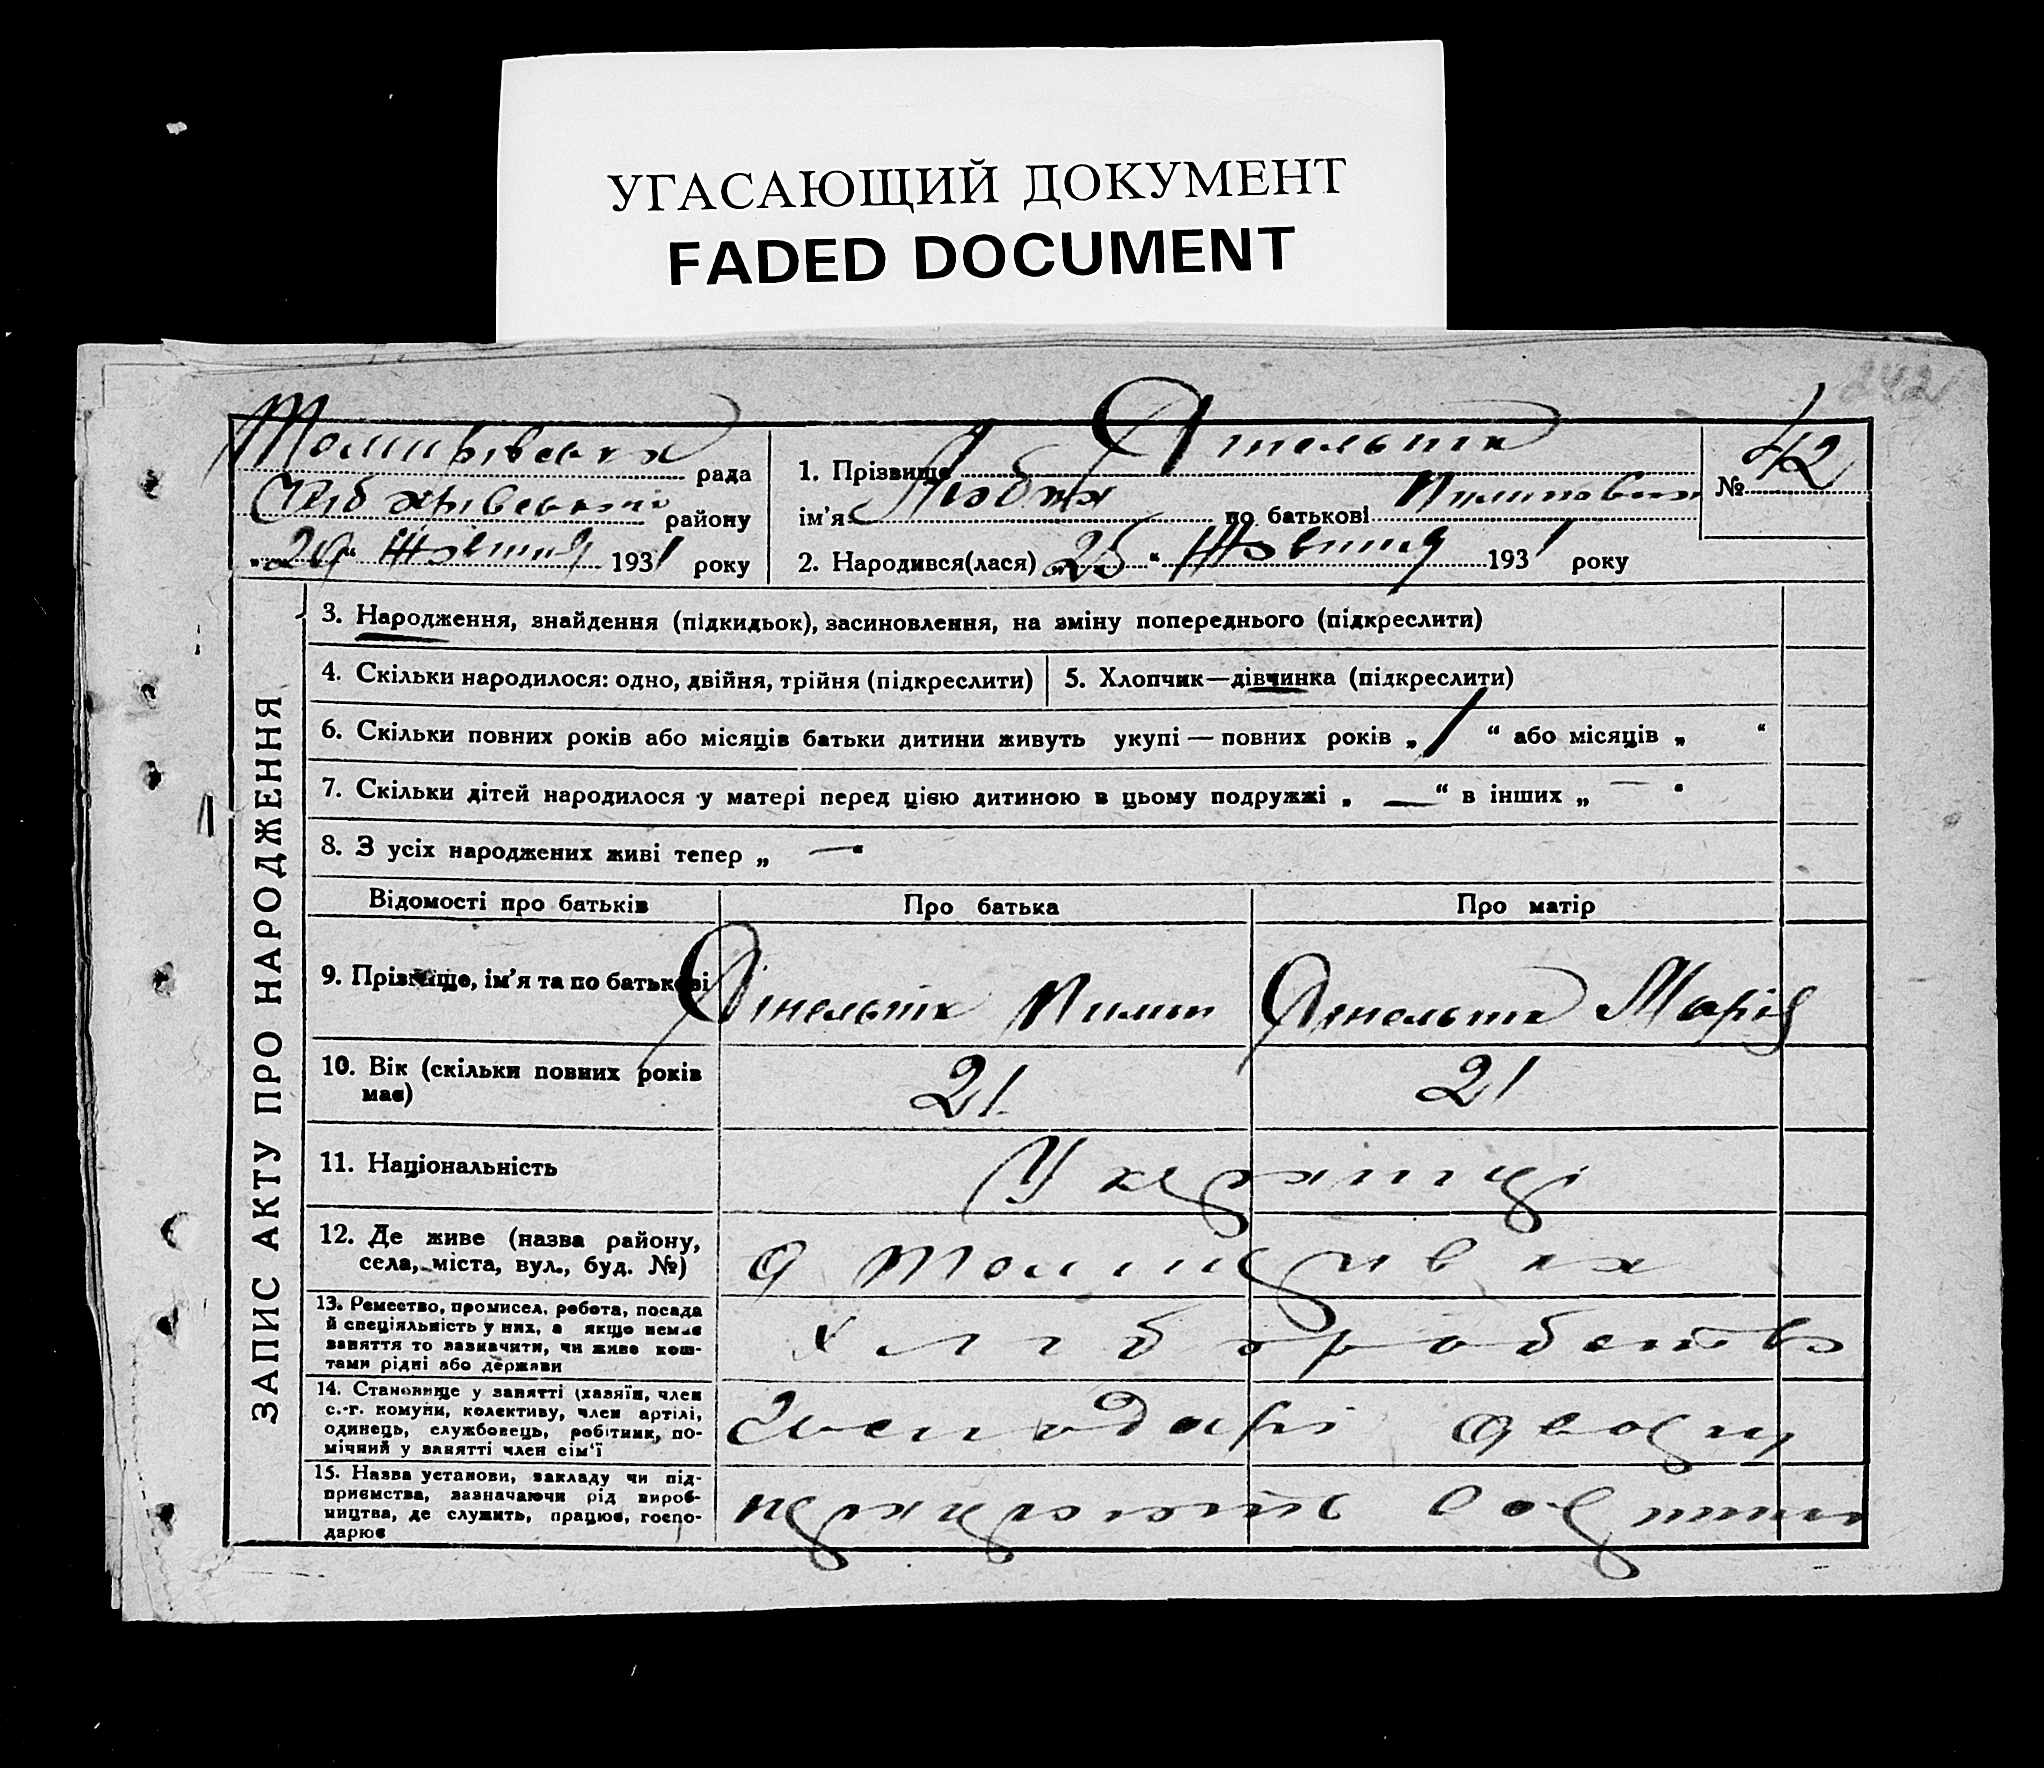 УГАСАЮЩИЙ ДОКУМЕНТ
FADED DOCUMENT
242
рада
району
"29" Жовтня 1931 року
1. Прізвище
ім'я Любка по батькові Пилиповна
2. Народився(лася) "25" Жовтня 1931 року
№ 42
ЗАПИС АКТУ ПРО НАРОДЖЕННЯ
3. Народження, знайдення (підкидьок), засиновлення, на зміну попереднього (підкреслити)
4. Скільки народилося: одно, двійня, трійня (підкреслити)
5. Хлопчик—дівчинка (підкреслити)
6. Скільки повних років або місяців батьки дитини живуть укупі — повних років „ 1 “ або місяців „ “
7. Скільки дітей народилося у матері перед цією дитиною в цьому подружжі „ — “ в інших „ — “
8. З усіх народжених живі тепер „ — “
Відомості про батьків
Про батька
Про матір
9. Прізвище, ім'я та по батькові
Пилип
Марія
10. Вік (скільки повних років
має)
21
21
11. Національність
Українці
12. Де живе (назва району,
села, міста, вул., буд. №)
13. Ремество, промисел, робота, посада
й спеціяльність у них, а якщо немає
заняття то зазначити, чи живе кош-
тами рідні або держави
хліборобство
14. Становище у занятті (хазяїн, член
с.-г. комуни, колективу, член артілі,
одинець, службовець, робітник, по-
мічний у занятті член сім'ї
Господарі двору
15. Назва установи, закладу чи під-
приємства, зазначаючи рід вироб-
ництва, де служить, працює, госпо-
дарює
працюють